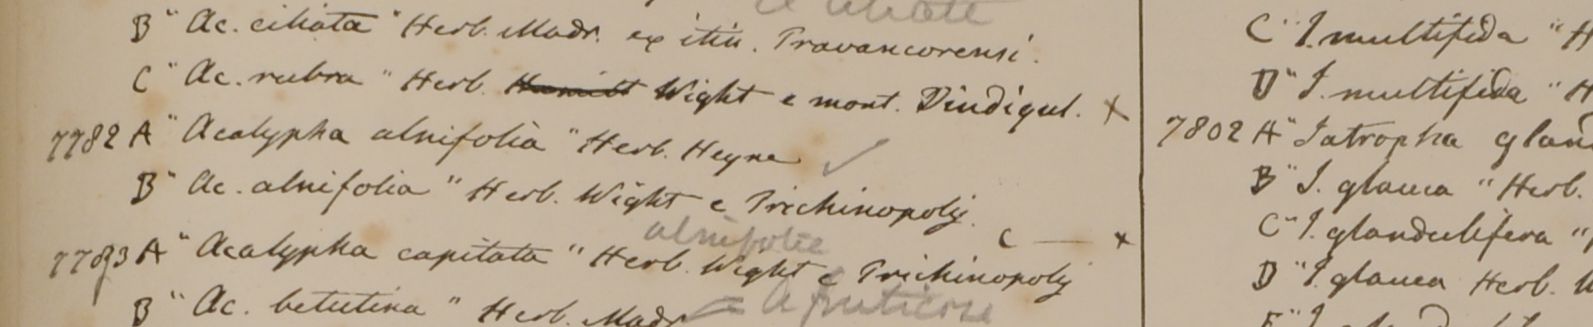 A ciliate
B "Ac. ciliata" Herb. Madr. ex itin. Travancorensi.
C "Ac. rubra" Herb. Wight e mont. Dindigul. ×
7782 A "Acalypha alnifolia" Herb. Heyne ✓
B "Ac. alnifolia" Herb. Wight e Trichinopoly.
C — ×
alnifolia
7783 A "Acalypha capitata" Herb. Wight e Trichinopoly
B "Ac. betulina" Herb. Madr = A fruticosa
C "J. multifida" H
D "J. multifida" H
7802 A "Jatropha gland
B "J. glauca" Herb.
C "J. glandulifera"
D "J. glauca Herb.
E "J.